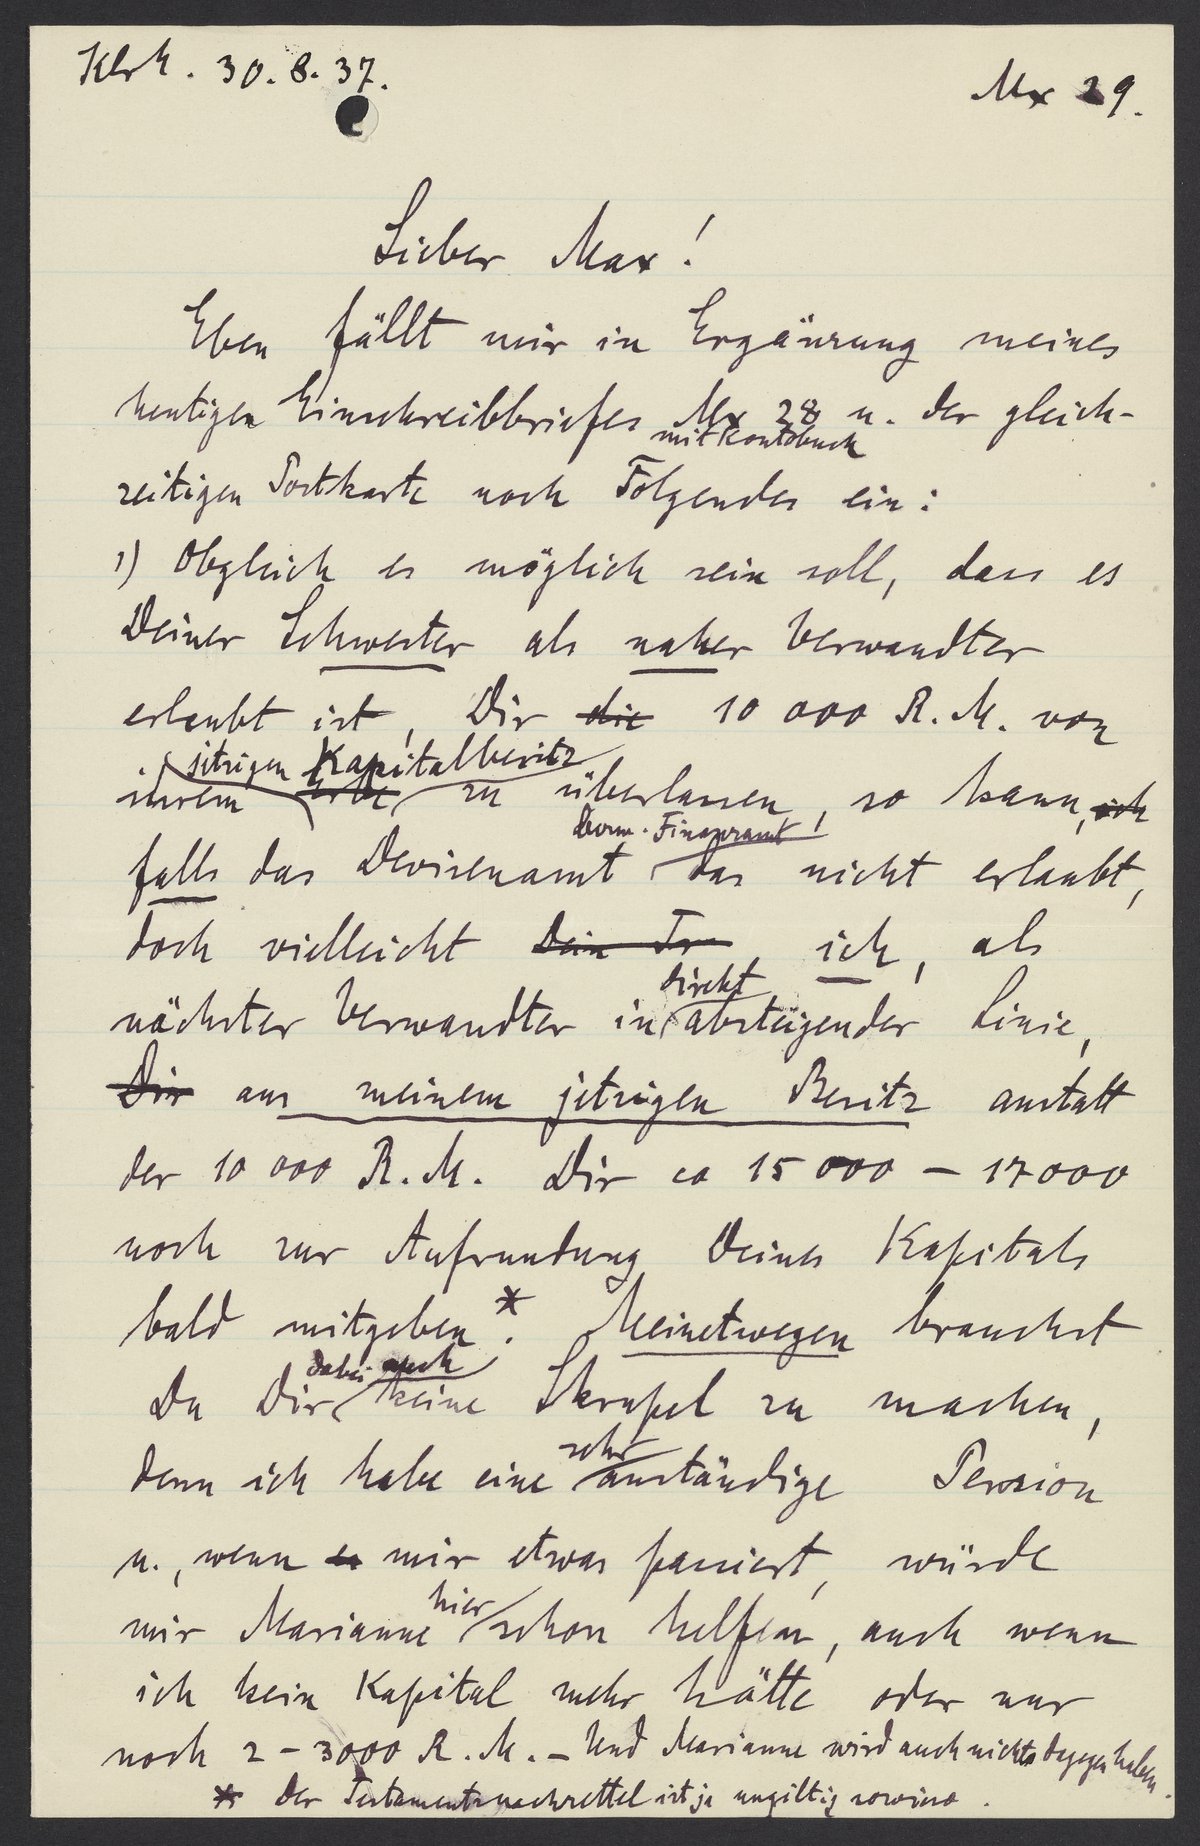 Klrh. 30.8.37.
Mx 29.
Lieber Max!
Eben fällt mir in Ergänzung meines
heutigen Einschreibbriefes Mx 28 u. der gleich-
mit Kontobuch
zeitigen Postkarte noch Folgendes ein:
1) Obgleich es möglich sein soll, dass es
Deiner Schwester als naher Verwandter
erlaubt ist, Dir die 10 000 R.M. von
jetzigen Kapitalbesitz
ihrem Erbe zu überlassen, so kann, ich
bezw. Finanzamt
falls das Devisenamt das nicht erlaubt,
doch vielleicht Dein ich, als
direkt
nächster Verwandter in absteigender Linie,
Dir aus meinem jetzigen Besitz anstatt
der 10 000 R.M. Dir ca 15 000 – 17000
noch zur Aufrundung Deines Kapitals
bald mitgeben*. Meinetwegen brauchst
dabei auch
Du Dir keine Skrupel zu machen,
sehr
denn ich habe eine anständige Pension
u., wenn es mir etwas passiert, würde
hier
mir Marianne schon helfen, auch wenn
ich kein Kapital mehr hätte oder nur
noch 2 – 3000 R.M. – Und Marianne wird auch nichts dagegen haben.
* Der Testamentsnachzettel ist ja ungiltig sowieso.